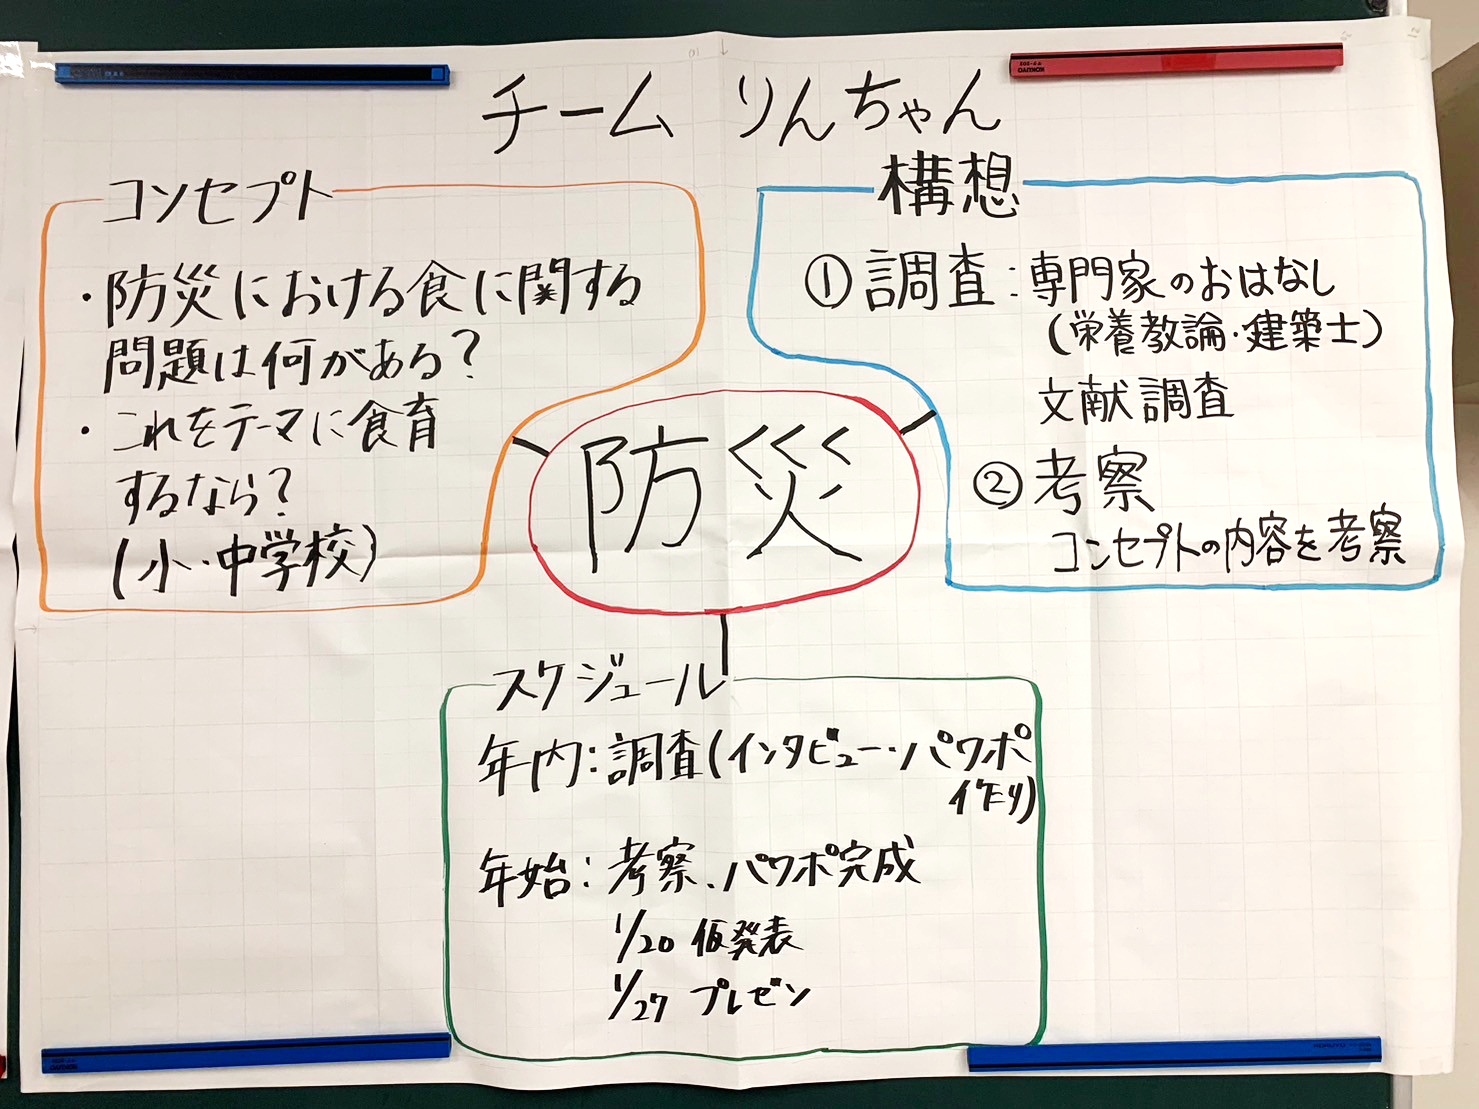 チーム りんちゃん
コンセプト
・防災における食に関する
問題は何がある?
・これをテーマに食育
するなら?
(小・中学校)
構想
①調査:専門家のおはなし
(栄養教論・建築士)
文献調査
②考察
コンセプトの内容を考察
防災
スケジュール
年内:調査(インタビュー・パワポ
作り)
年始:考察、パワポ完成
1/20 仮発表
1/27 プレゼン